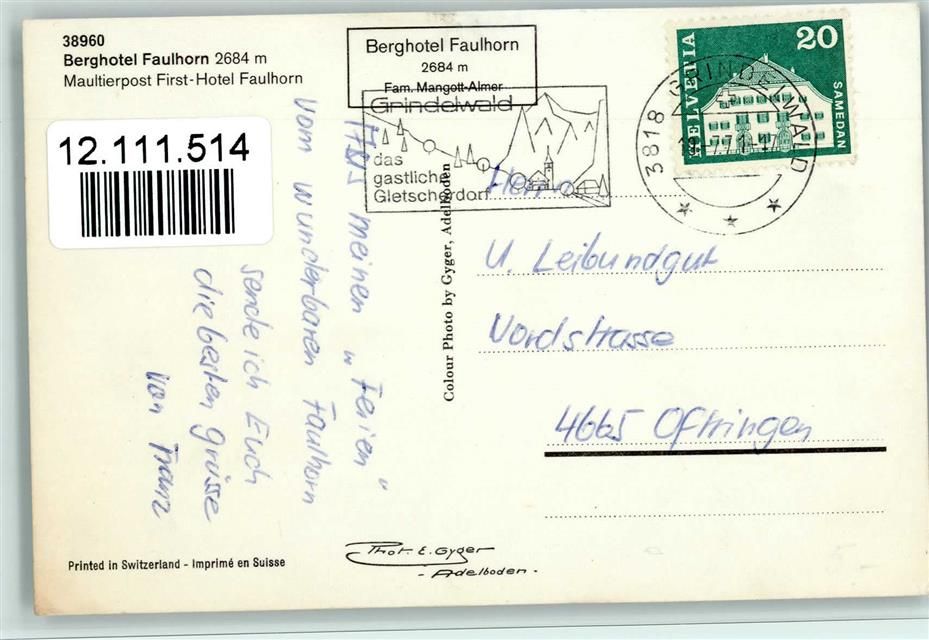 38960
Berghotel Faulhorn 2684 m
Maultierpost First-Hotel Faulhorn
12.111.514
Berghotel Faulhorn
2684 m
Fam. Mangott-Almer
Grindelwald
das
gastliche
Gletscherdorf
3818 GRINDELWALD
HELVETIA
20
SAMEDAN
Aus meinen „Ferien"
vom wunderbaren Faulhorn
sende ich Euch
die besten Grüsse
von Franz
Colour Photo by Gyger, Adelboden
Herrn
U. Leibundgut
Nordstrasse
4665 Oftringen
Printed in Switzerland - Imprimé en Suisse
Phot. E. Gyger
- Adelboden -